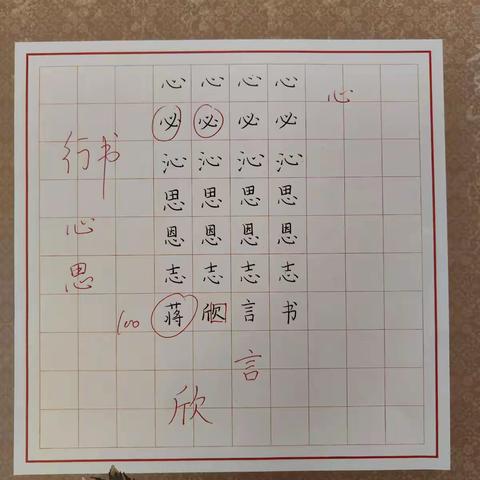 心心心心
心
必必必必
行书
沁沁沁沁
思思思思
心
恩恩恩恩
思
志志志志
蒋欣言书
100
言
欣